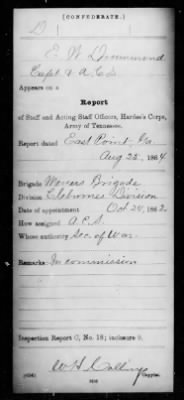 [CONFEDERATE.]
D
E. W. Drummond
Capt & A.C.S.
Appears on a
Report
of Staff and Acting Staff Officers, Hardee's Corps,
Army of Tennessee.
Report dated East Point, Ga.
Aug 25, 1864
Brigade Mercers Brigade
Division Cleburnes Division
Date of appointment Oct 20, 1862.
How assigned A.C.S.
Whose authority Sec. of War
Remarks: In commission
Inspection Report C, No. 18; inclosure 9.
Copyist.